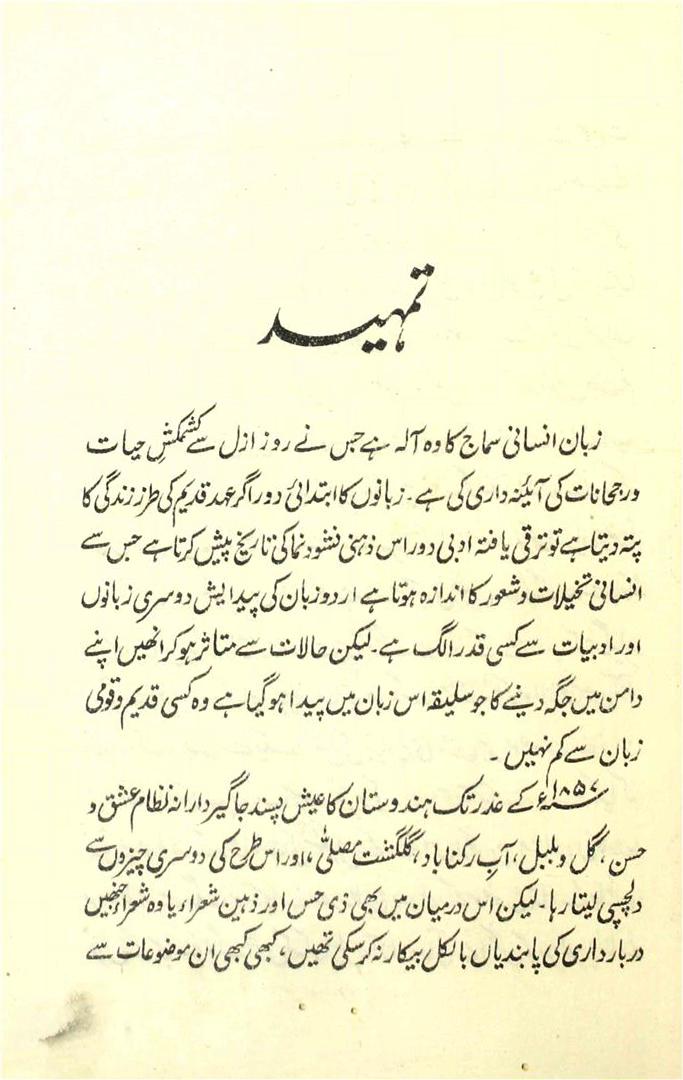 تمہید
زبان انسانی سماج کا وہ آلہ ہے جس نے روز ازل سے کشمکشِ حیات
و رجحانات کی آئینہ داری کی ہے۔ زبانوں کا ابتدائی دور اگر عہد قدیم کی طرز زندگی کا
پتہ دیتا ہے تو ترقی یافتہ ادبی دور اس ذہنی نشوونما کی تاریخ پیش کرتا ہے جس سے
انسانی تخیلات و شعور کا اندازہ ہوتا ہے اردو زبان کی پیدایش دوسری زبانوں
اور ادبیات سے کسی قدر الگ ہے۔ لیکن حالات سے متاثر ہو کر انھیں اپنے
دامن میں جگہ دینے کا جو سلیقہ اس زبان میں پیدا ہو گیا ہے وہ کسی قدیم و قومی
زبان سے کم نہیں۔
۱۸۵۷ء کے غدر تک ہندوستان کا عیش پسند جاگیردارانہ نظام عشق و
حسن، گل و بلبل، آبِ رکناباد، گلگشت مصلیٰ، اور اس طرح کی دوسری چیزوں سے
دلچسپی لیتا رہا۔ لیکن اس درمیان میں بھی ذی حس اور ذہین شعراء یا وہ شعراء جنھیں
دربار داری کی پابندیاں بالکل بیکار نہ کر سکی تھیں، کبھی کبھی ان موضوعات سے